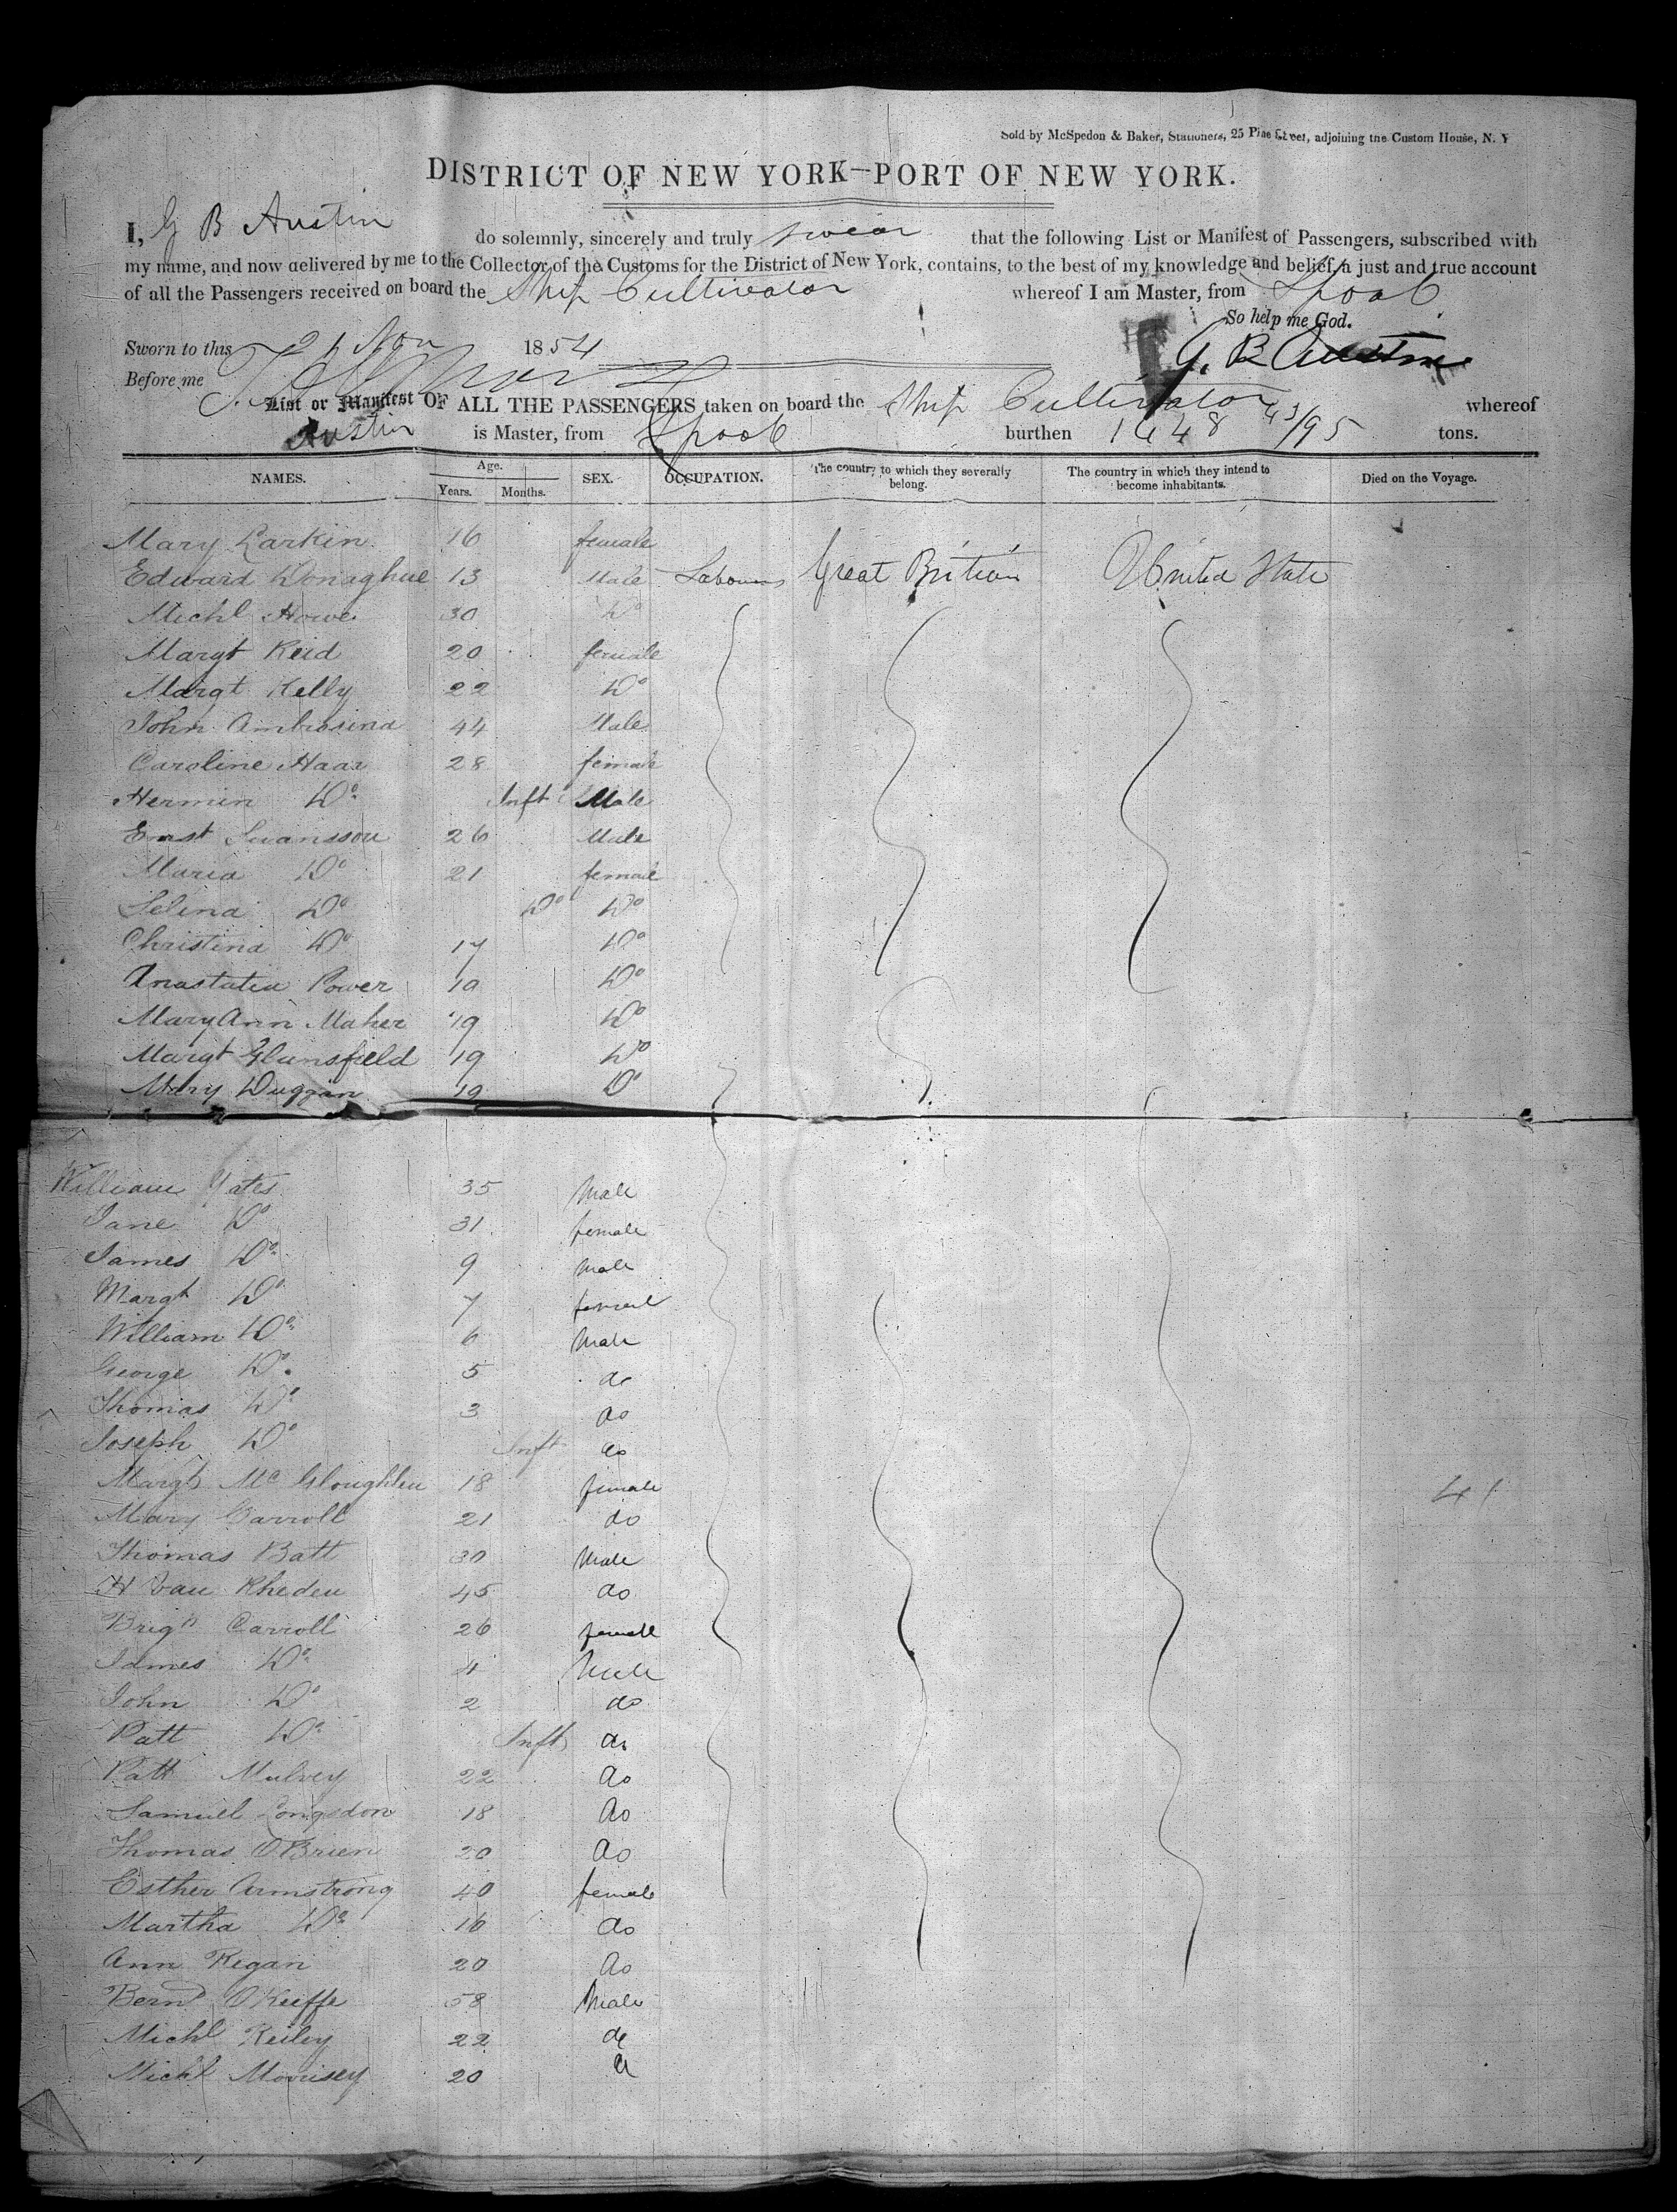 Sold by McSpedon & Baker, Stationers, 25 Pine Street, adjoining the Custom House, N. Y
DISTRICT OF NEW YORK—PORT OF NEW YORK.
I, G B Austin do solemnly, sincerely and truly swear that the following List or Manifest of Passengers, subscribed with
my name, and now delivered by me to the Collector of the Customs for the District of New York, contains, to the best of my knowledge and belief, a just and true account
of all the Passengers received on board the Ship Cultivator whereof I am Master, from Lpool
So help me God.
Sworn to this 21 Nov 1854
G. B Austin
Before me
List or Manifest OF ALL THE PASSENGERS taken on board the Ship Cultivator whereof
Austin is Master, from Lpool burthen 1448 43/95 tons.
NAMES. Age. Years. Months. SEX. OCCUPATION. The country to which they severally belong. The country in which they intend to become inhabitants. Died on the Voyage.
Mary Larkin 16 female
Edward Donaghue 13 Male Labourers Great Britian United State
Michl Howe 30 Do
Margt Reid 20 female
Margt Kelly 22 Do
John Ambrosina 44 Male
Caroline Haar 28 female
Hermin Do Inft Male
Ernst Swanssou 26 Male
Maria Do 21 female
Selina Do Do Do
Christina Do 17 Do
Anastatia Power 19 Do
Mary Ann Maher 19 Do
Margt Glunsfield 19 Do
Mary Duggan 19 Do
William Yates 35 Male
Jane Do 31 female
James Do 9 Male
Margt Do 7 female
William Do 6 Male
George Do 5 do
Thomas Do 3 do
Joseph Do Inft do
Margt Mc Gloughlen 18 female
41
Mary Carroll 21 do
Thomas Batt 30 Male
H Van Rheden 45 do
Brigt Carroll 26 female
James Do 4 Male
John Do 2 do
Patt Do Inft do
Patt Mulvey 22 do
Samuel Longsdon 18 do
Thomas OBrien 20 do
Esther Armstrong 40 female
Martha Do 16 do
Ann Regan 20 do
Bernd OKeeffe 58 Male
Michl Reiley 22 do
Michl Morrisey 20 do